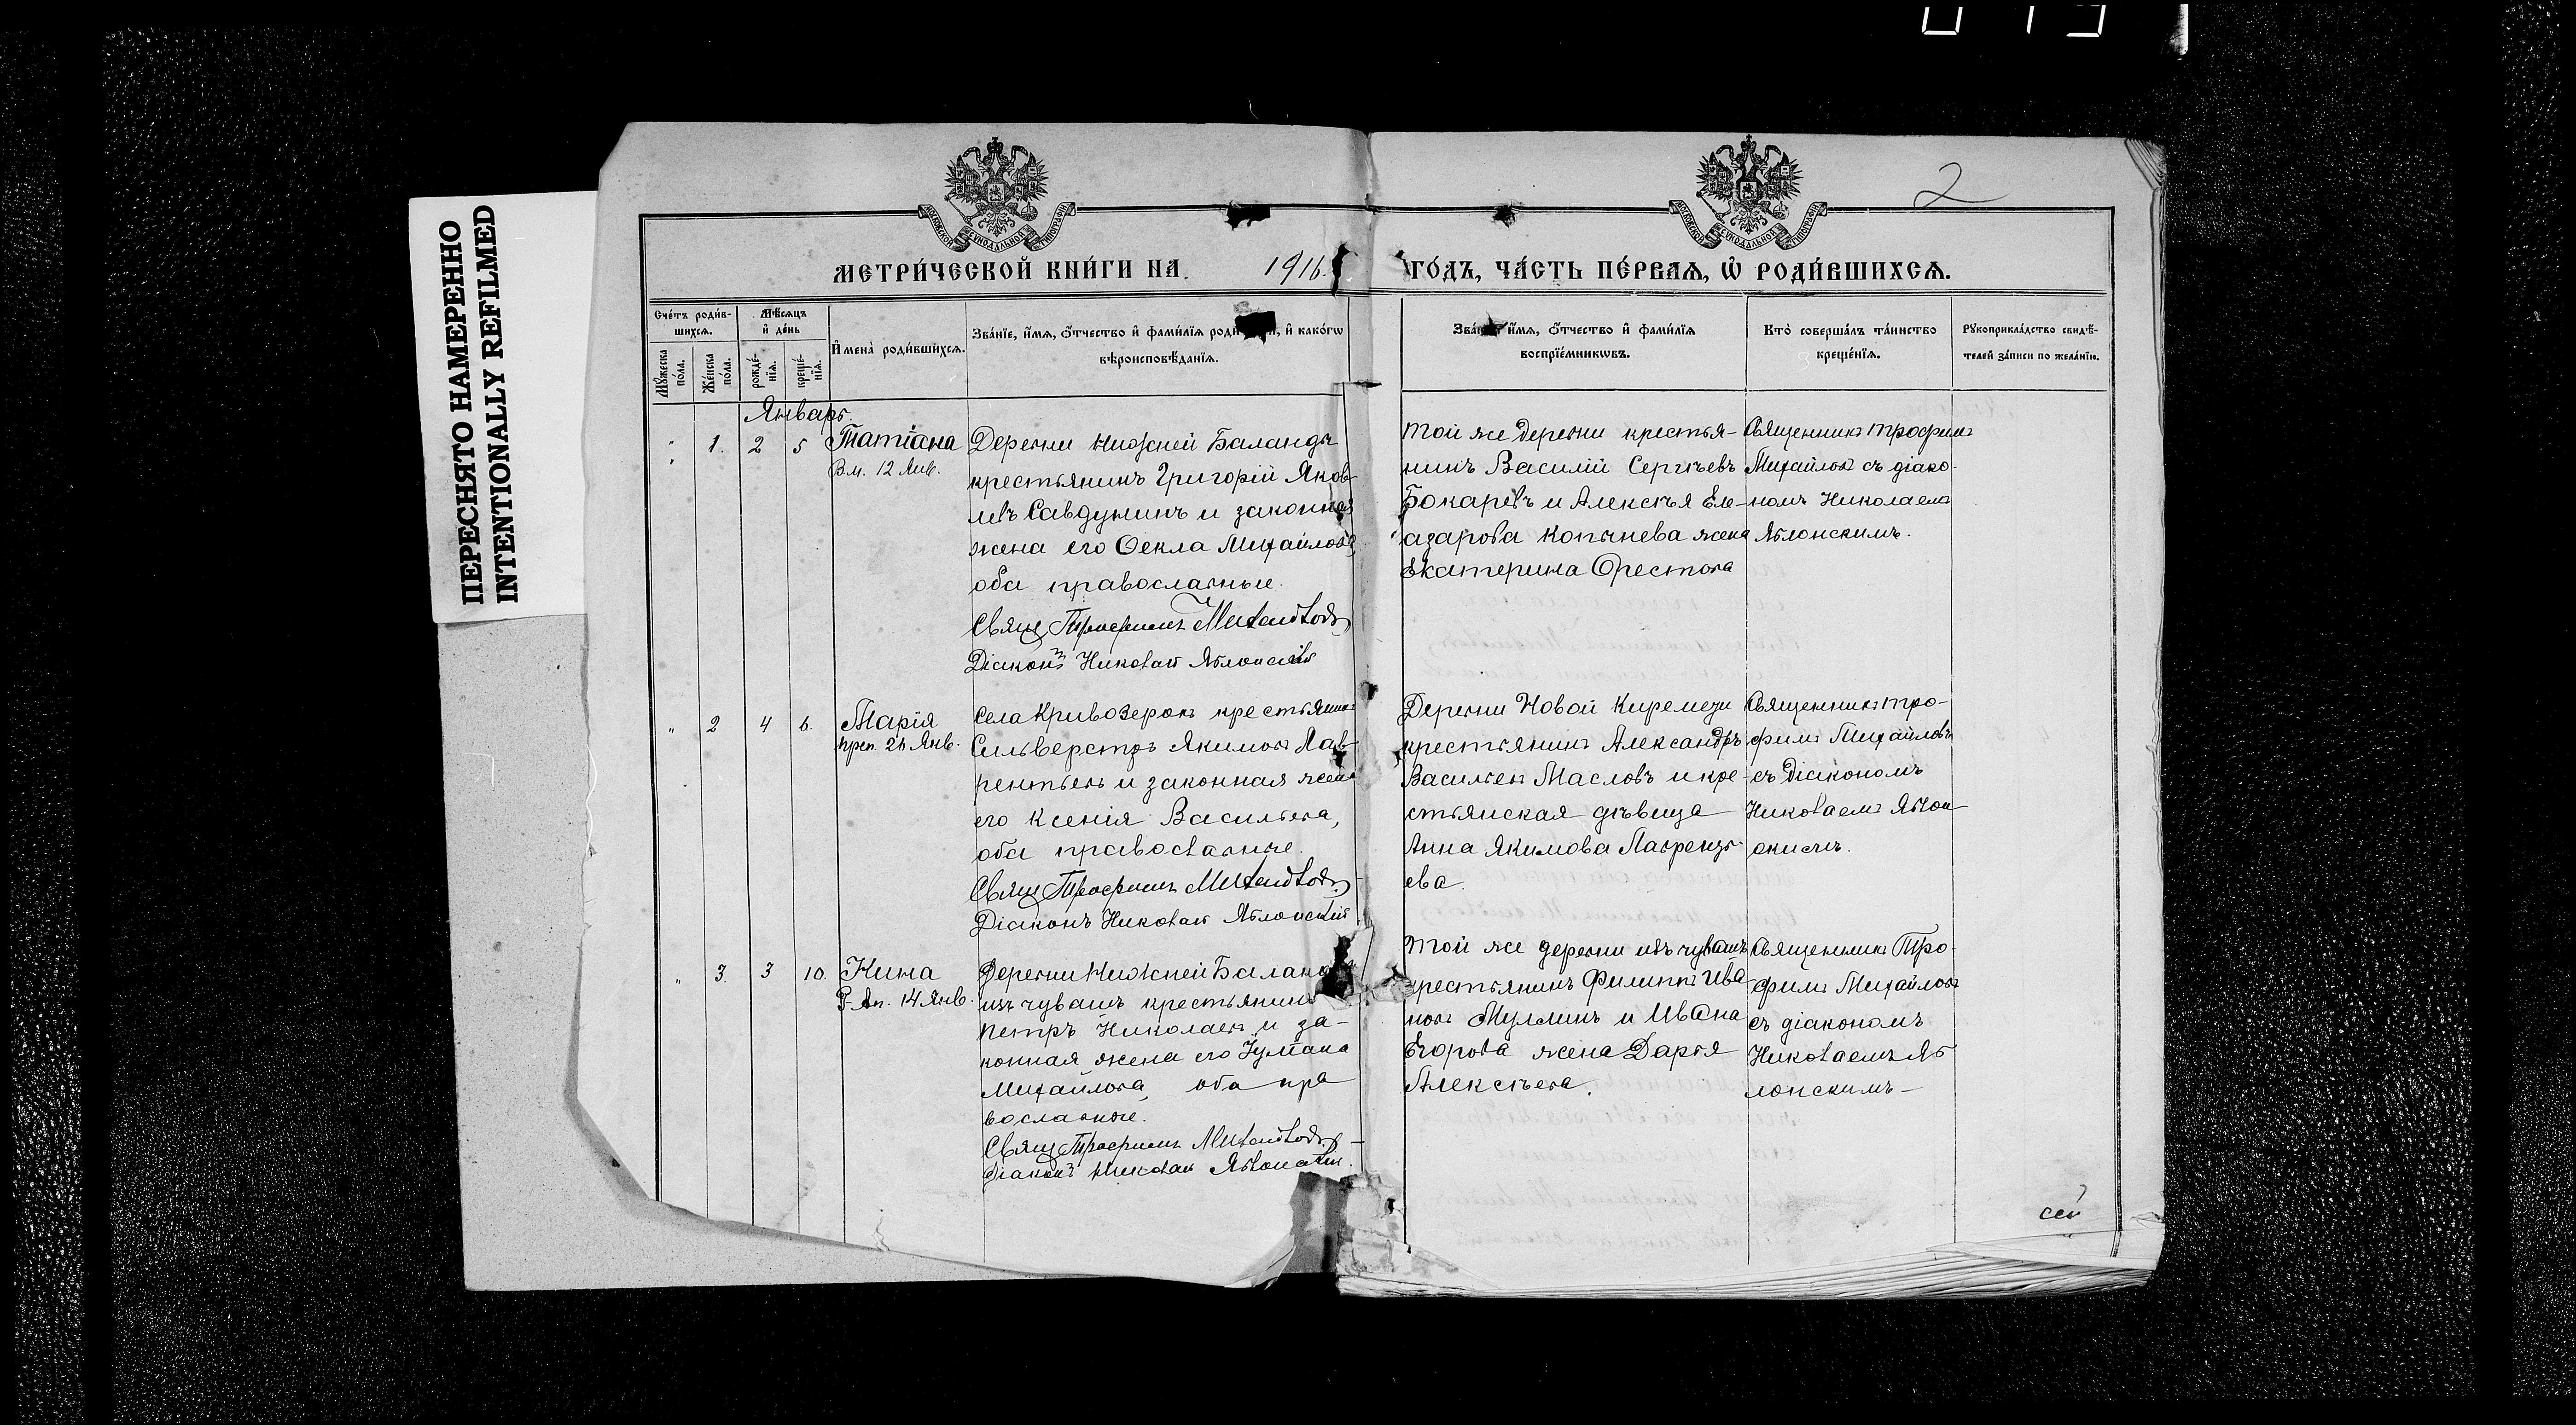 ПЕРЕСНЯТО НАМЕРЕННО
INTENTIONALLY REFILMED
2
МОСКОВСКОЙ СѴНОДАЛЬНОЙ ТИПОГРАФІИ
МОСКОВСКОЙ СѴНОДАЛЬНОЙ ТИПОГРАФІИ
МЕТРИ́ЧЕСКОЙ КНИ́ГИ НА 1916
ГО́ДЪ, ЧА́СТЬ ПЕ́РВАѦ, Ѡ҆ РОДИ́ВШИХСѦ.
Сче́тъ роди́в-
шихсѧ.
Мꙋ́жеска по́ла.
Же́нска по́ла.
Мѣ́сѧцъ
и҆ де́нь
рожде́-
нїѧ.
креще́-
нїѧ.
И҆мена̀ роди́вшихсѧ.
Зва́нїе, и҆́мѧ, ѻ҆́тчество и҆ фами́лїѧ роди и҆ како́гѡ
вѣроисповѣ́данїѧ.
и҆́мѧ, ѻ҆́тчество и҆ фами́лїѧ
воспрїе́мникѡвъ.
Кто̀ соверша́лъ та́инство
креще́нїѧ.
Рꙋкоприкла́дство свидѣ́-
телей за́писи по жела́нїю.
Январь.
" 1. 2 5 Татіана
Вм. 12 Янв.
Деревни Нижней Баланды
крестьянинъ Григорій Яков-
левъ Савдунинъ и законная
жена его Ѳекла Михайлова
оба православные.
Свящ Трофимъ Михайловъ
Діаконъ Николай Яблонскій
Той же деревни крестья-
нинъ Василій Сергѣевъ
Бокаревъ и Алексѣя Еле-
азарова Копынева жена
Екатерина Орестова
Священникъ Трофимъ
Михайловъ съ діако-
номъ Николаемъ
Яблонскимъ.
" 2 4 6. Марія
прп. 26 Янв.
Села Кривозерокъ крестьянинъ
Сильверстръ Якимовъ Лав-
рентьевъ и законная жена
его Ксенія Васильева,
оба православные.
Свящ Трофимъ Михайловъ
Діаконъ Николай Яблонскій
Деревни Новой Киремети
крестьянинъ Александръ
Васильевъ Масловъ и кре-
стьянская дѣвица
Анна Якимова Лавренть-
ева.
Священникъ Тро-
фимъ Михайловъ
съ діакономъ
Николаемъ Яблон-
скимъ.
" 3. 3 10. Нина
Р. Ап. 14 Янв.
Деревни Нижней Баланды
изъ чувашъ крестьянинъ
Петръ Николаевъ и за-
конная жена его Іуліана
Михайлова, оба пра
вославные.
Свящ Трофимъ Михайловъ
Діаконъ Николай Яблонскій.
Той же деревни изъ чувашъ
крестьянинъ Филиппъ Ива
новъ Муллинъ и Ивана
Егорова жена Дарья
Алексѣева.
Священникъ Тро-
фимъ Михайловъ
съ діакономъ
Николаемъ Яб
лонскимъ
сей